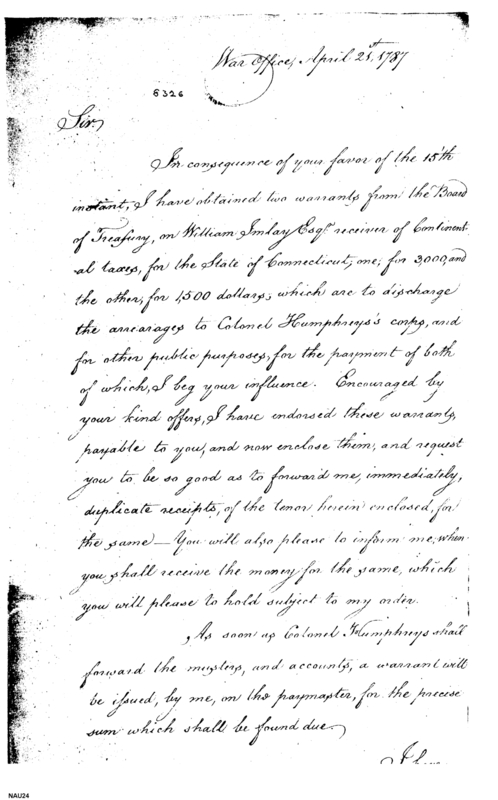 War Office, April 21st, 1787
6326
Sir,
In consequence of your favor of the 15th
instant, I have obtained two warrants from the Board
of Treasury, on William Imlay Esqr. receiver of Continent-
al taxes, for the State of Connecticut, one, for 3,000, and
the other, for 1,500 dollars; which are to discharge
the arrearages to Colonel Humphreys's corps, and
for other public purposes, for the payment of both
of which, I beg your influence. Encouraged by
your kind offers, I have endorsed these warrants,
payable to you, and now enclose them, and request
you to be so good as to forward me, immediately,
duplicate receipts, of the tenor herein enclosed, for
the same — You will also please to inform me, when
you shall receive the money for the same, which
you will please to hold subject to my order.
As soon as Colonel Humphreys shall
forward the musters, and accounts, a warrant will
be issued, by me, on the paymaster, for the precise
sum which shall be found due.
NAU24